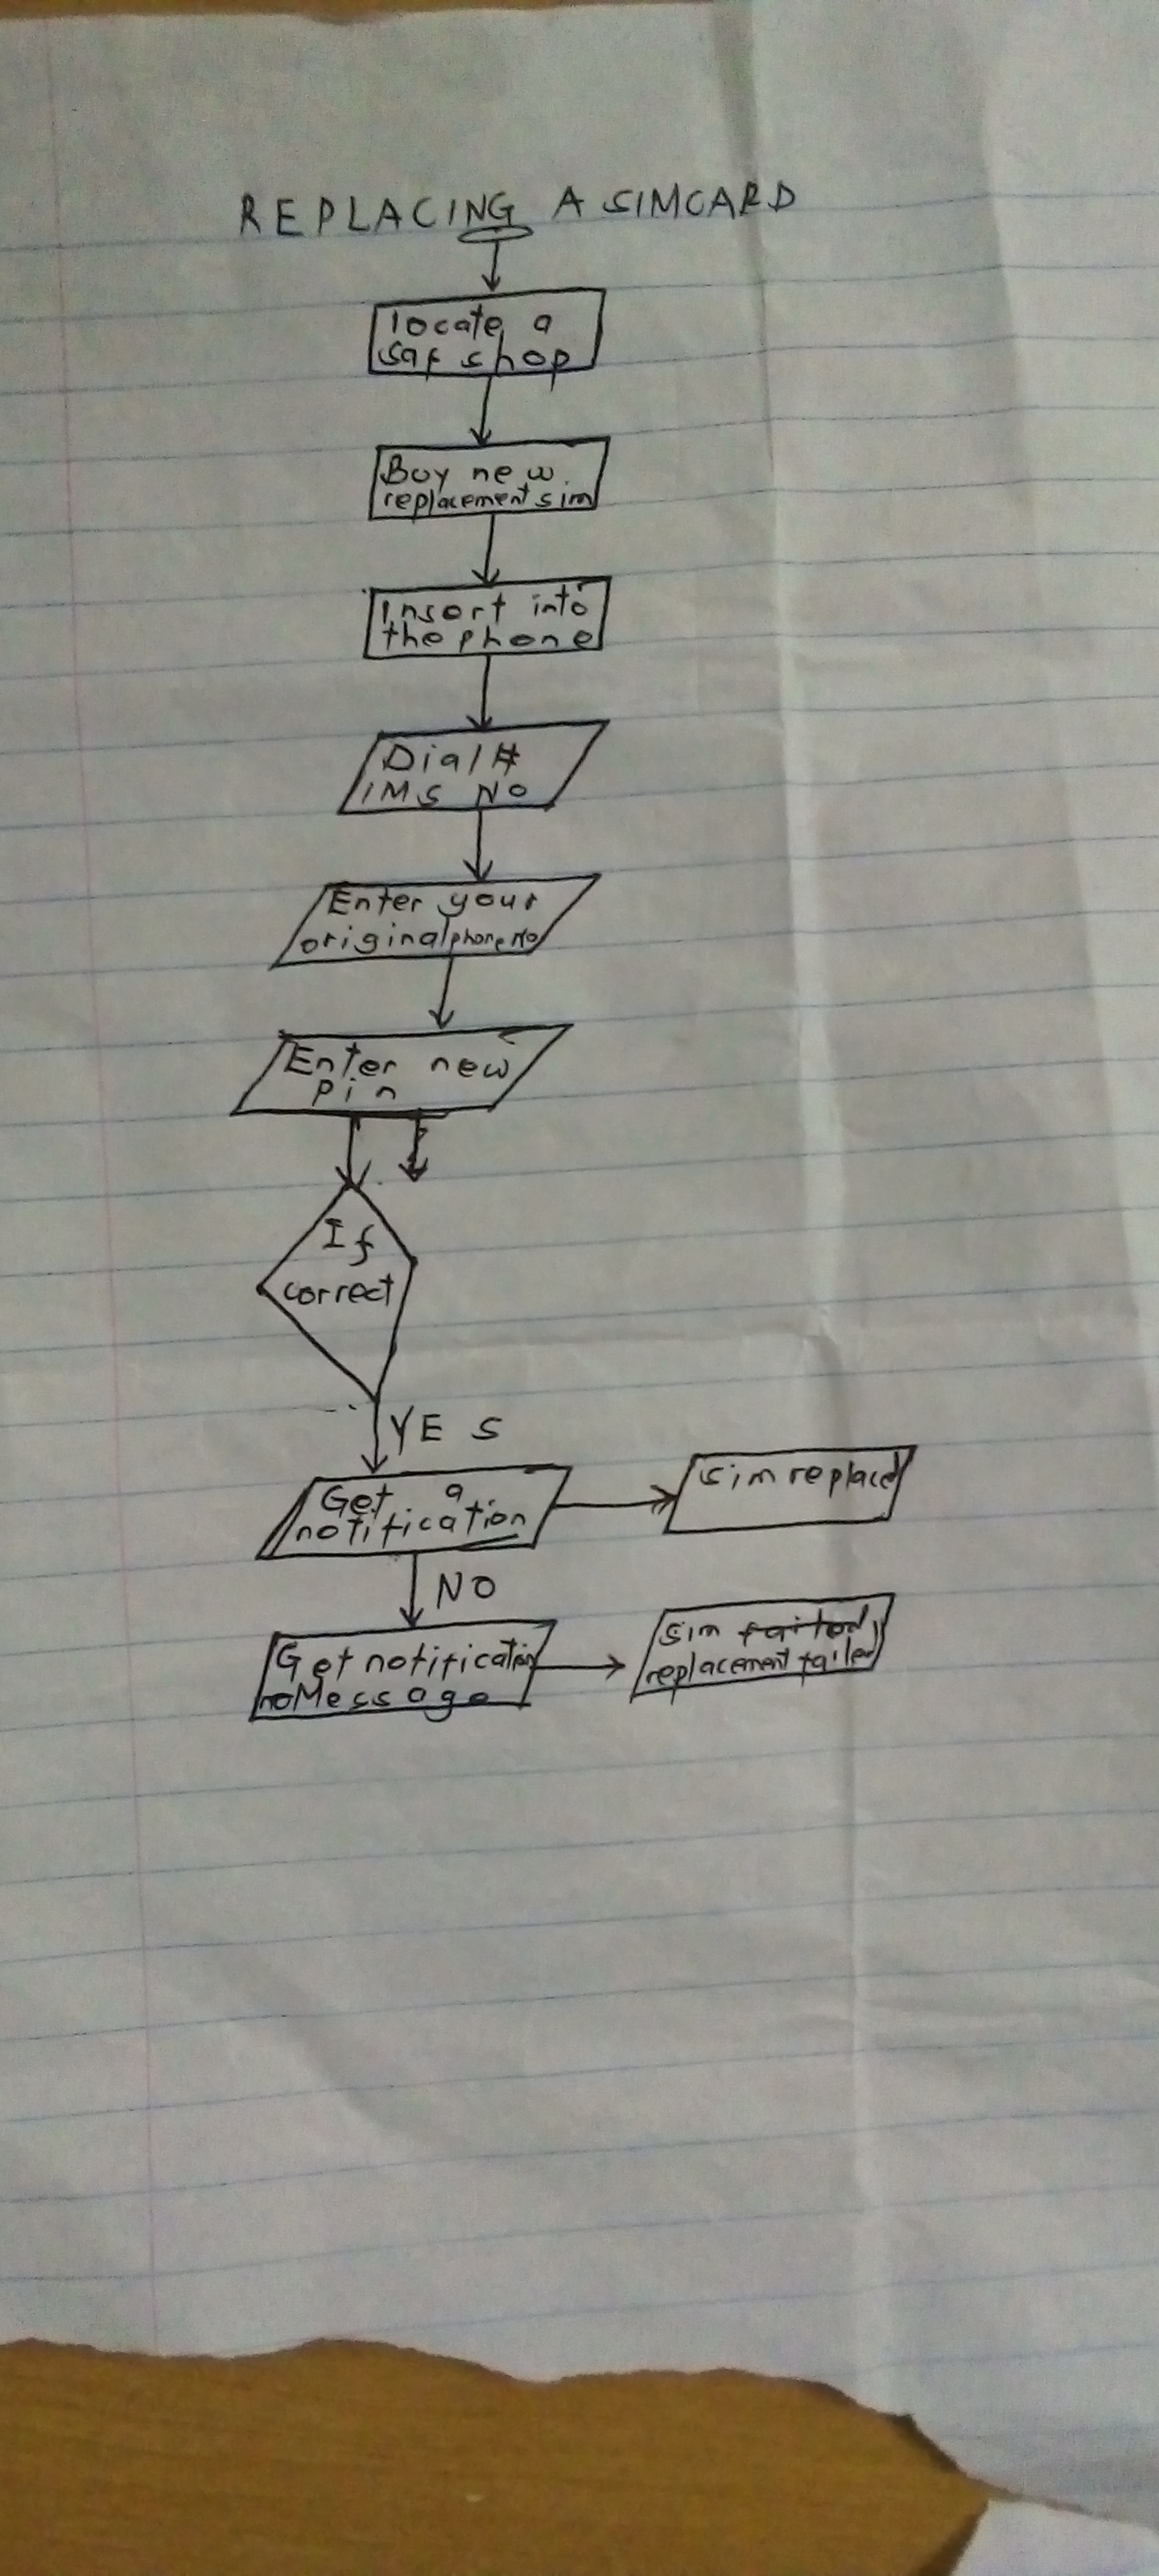 REPLACING A SIMCARD
locate a
saf shop
Buy new
replacement sim
Insert into
the phone
Dial #
IMS NO
Enter your
original phone No
Enter new
pin
If
correct
YES
Get a
notification
sim replaced
NO
Get notification
Message
sim failed
replacement failed